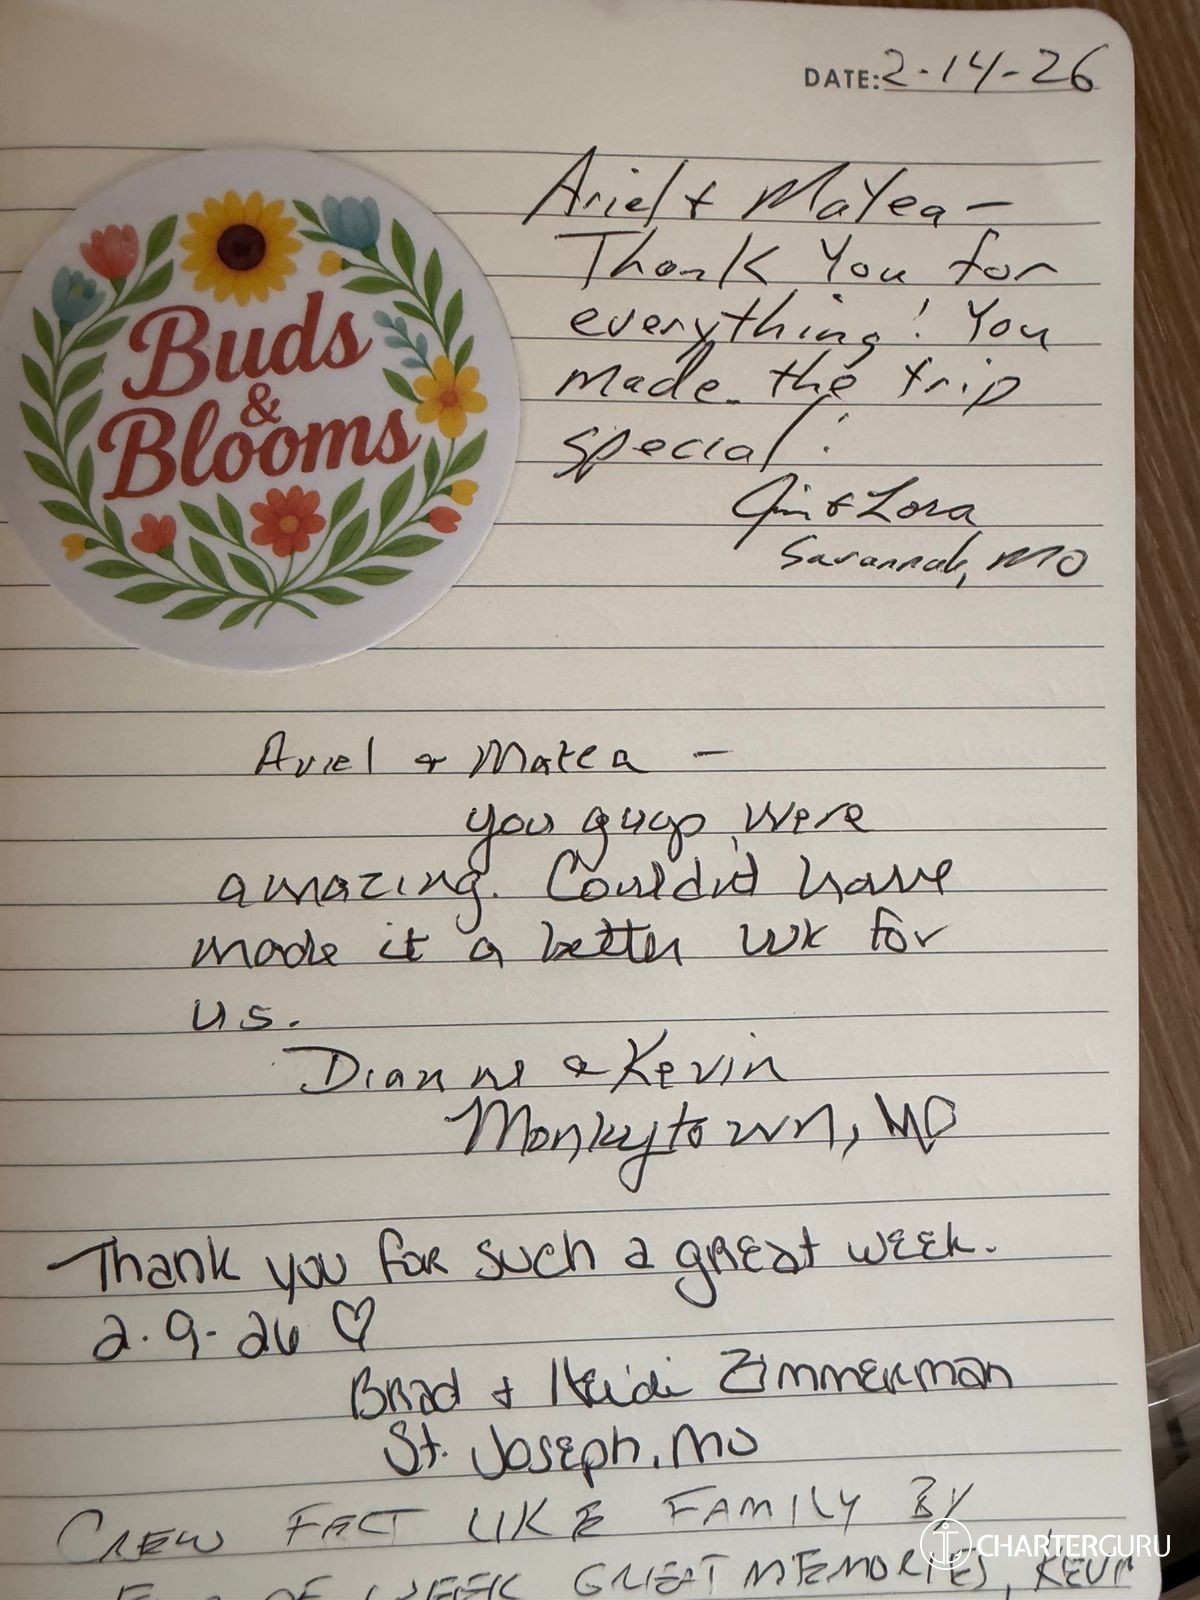 DATE: 2-14-26
Buds
&
Blooms
Ariel + MaYea -
Thank You for
everything! You
made the trip
special!
Jim & Lora
Savannah, MO
Ariel & Matea -
you guys were
amazing. Couldn't have
made it a better wk for
us.
Dianne & Kevin
Monkytown, MO
Thank you for such a great week.
2.9-26 ♡
Brad + Heidi Zimmerman
St. Joseph, MO
CREW FELT LIKE FAMILY BY
END OF WEEK GREAT MEMORIES, KEVIN
CHARTERGURU